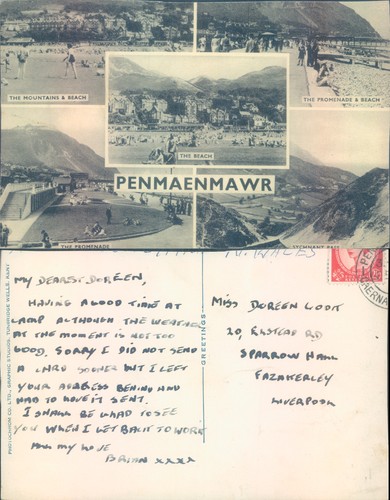 THE MOUNTAINS & BEACH
THE PROMENADE & BEACH
THE BEACH
PENMAENMAWR
THE PROMENADE
SYCHNANT PASS
N. WALES
MY DEAREST DOREEN,
HAVING A GOOD TIME AT
CAMP ALTHOUGH THE WEATHER
AT THE MOMENT IS NOT TOO
GOOD. SORRY I DID NOT SEND
A CARD SOONER BUT I LEFT
YOUR ADDRESS BEHIND AND
HAD TO HAVE IT SENT.
I SHALL BE GLAD TO SEE
YOU WHEN I GET BACK TO WORK
ALL MY LOVE
BRIAN XXXX
PHOTOCHROM CO. LTD., GRAPHIC STUDIOS, TUNBRIDGE WELLS, KENT
GREETINGS
MISS DOREEN
20, RD
SPARROW HALL
FAZAKERLEY
LIVERPOOL